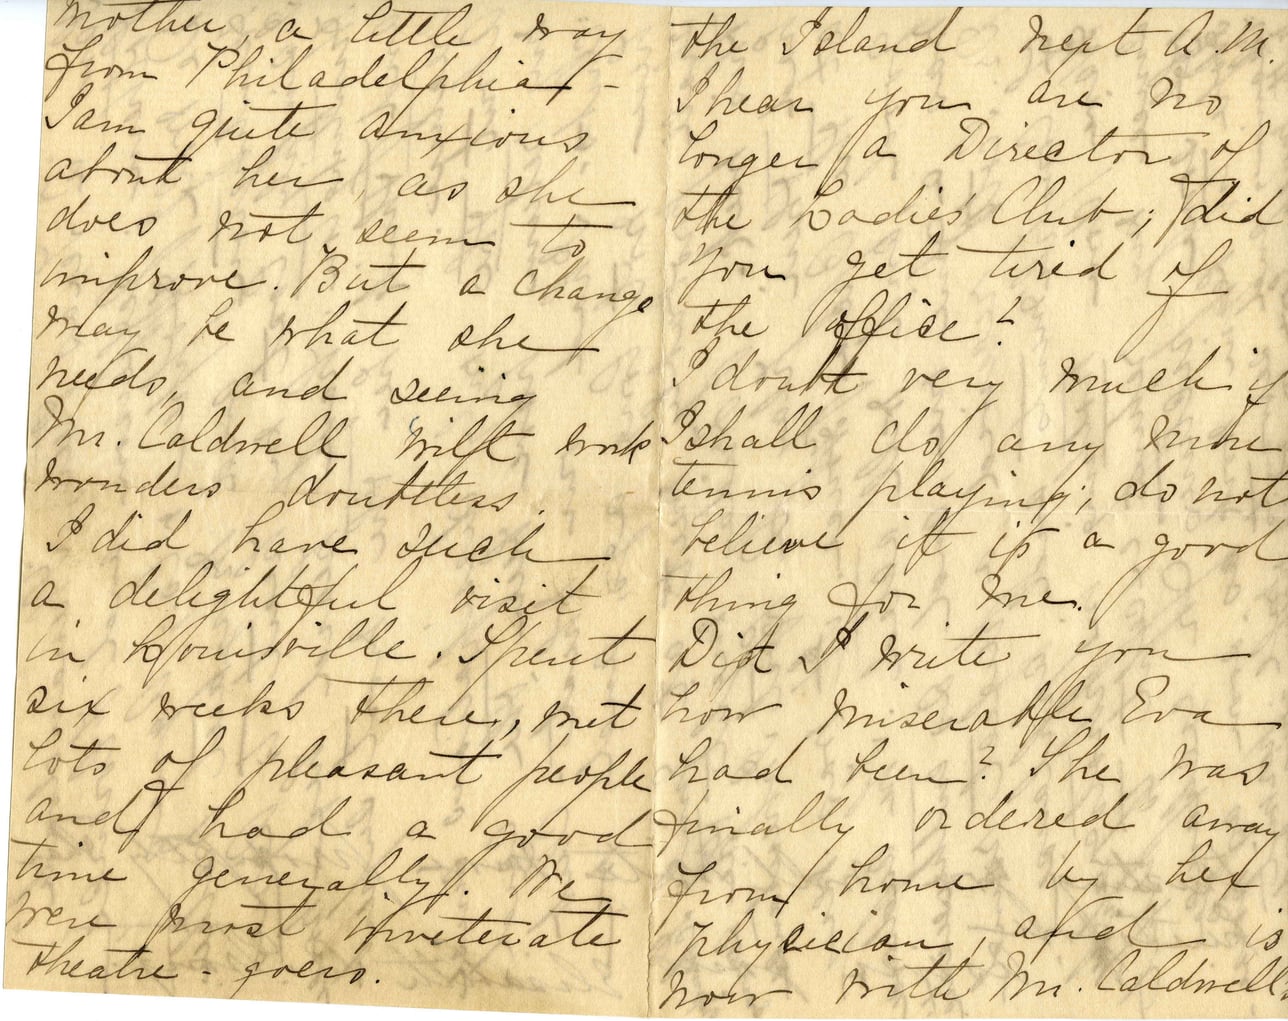 mother, a little way
from Philadelphia -
I am quite anxious
about her, as she
does not seem to
improve. But a change
may be what she
needs, and seeing
Mr. Caldwell will work
wonders doubtless.
I did have such
a delightful visit
in Louisville. Spent
six weeks there, met
lots of pleasant people
and had a good
time generally. We
were most inveterate
theatre-goers.
the Island next A.M.
I hear you are no
longer a Director of
the Ladies' Club; did
you get tired of
the office?
I doubt very much if
I shall do any more
tennis playing; do not
believe it is a good
thing for me.
Did I write you
how miserable Eva
had been? She was
finally ordered away
from home by her
physician, and is
now with Mr. Caldwell's